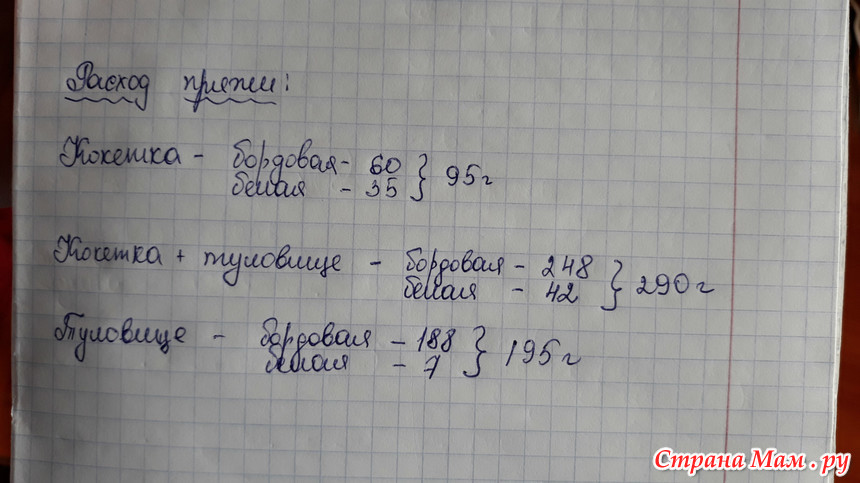 Расход пряжи:
Кокетка - бордовая - 60 } 95 г
белая - 35
Кокетка + туловище - бордовая - 248 } 290 г
белая - 42
Туловище - бордовая - 188 } 195 г
белая - 7
Страна Мам.ру